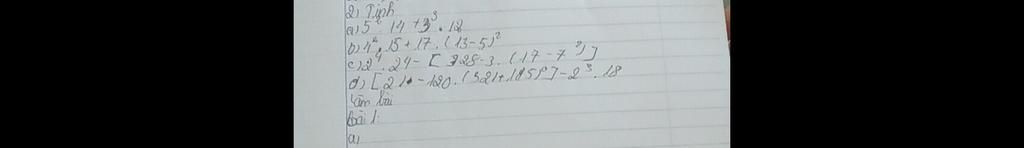 2) Tính
a) 5² . 14 + 3³ . 18
b) 4² . 15 + 17 . (13 - 5)²
c) 2⁴ . 24 - [ 328 - 3 . (17 - 7²) ]
d) [ 21 - 120 . (321 + 115)⁰ ] - 2³ . 18
Làm bài
bài 1:
a)